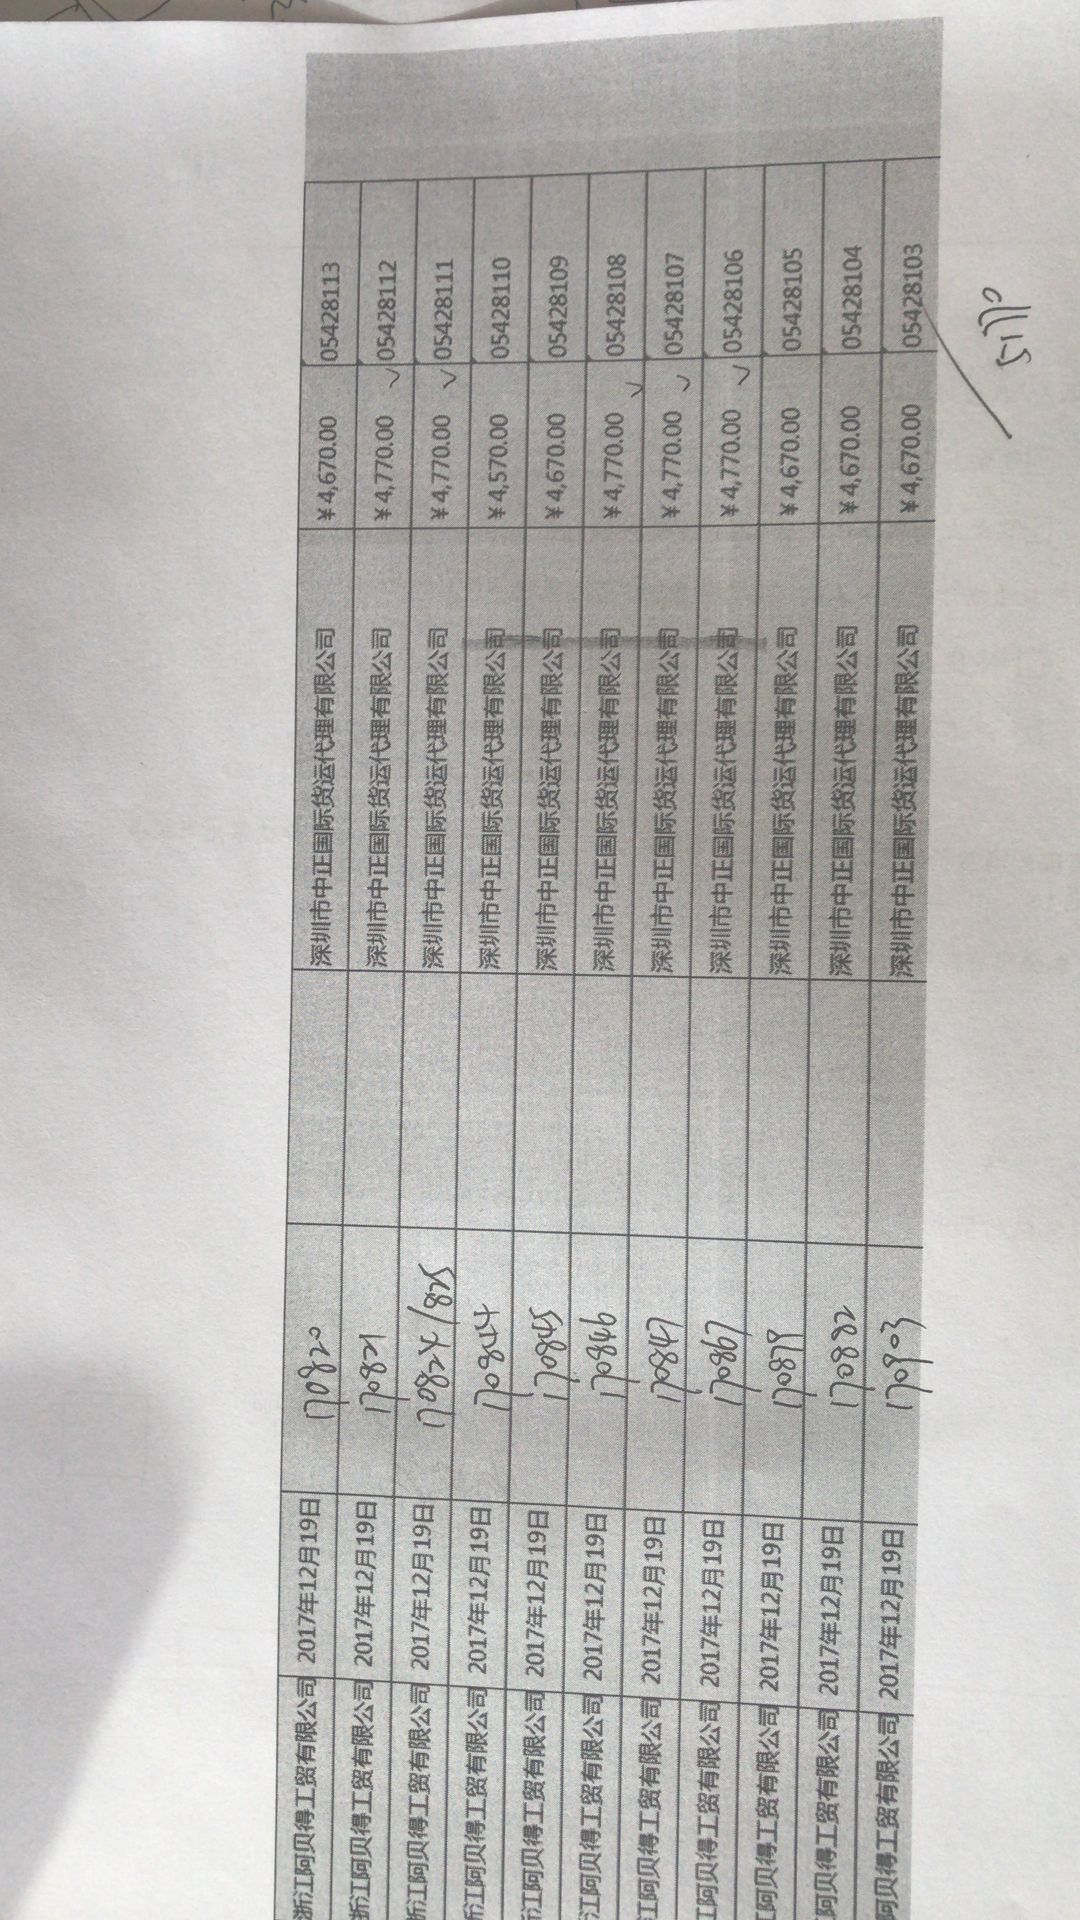 浙江阿贝得工贸有限公司 2017年12月19日 170820 深圳市中正国际货运代理有限公司 ¥4,670.00 05428113
浙江阿贝得工贸有限公司 2017年12月19日 170821 深圳市中正国际货运代理有限公司 ¥4,770.00 ✓ 05428112
浙江阿贝得工贸有限公司 2017年12月19日 170824/825 深圳市中正国际货运代理有限公司 ¥4,770.00 ✓ 05428111
江阿贝得工贸有限公司 2017年12月19日 170844 深圳市中正国际货运代理有限公司 ¥4,570.00 05428110
江阿贝得工贸有限公司 2017年12月19日 170845 深圳市中正国际货运代理有限公司 ¥4,670.00 05428109
江阿贝得工贸有限公司 2017年12月19日 170846 深圳市中正国际货运代理有限公司 ¥4,770.00 ✓ 05428108
江阿贝得工贸有限公司 2017年12月19日 170847 深圳市中正国际货运代理有限公司 ¥4,770.00 ✓ 05428107
江阿贝得工贸有限公司 2017年12月19日 170867 深圳市中正国际货运代理有限公司 ¥4,770.00 ✓ 05428106
阿贝得工贸有限公司 2017年12月19日 170878 深圳市中正国际货运代理有限公司 ¥4,670.00 05428105
阿贝得工贸有限公司 2017年12月19日 170882 深圳市中正国际货运代理有限公司 ¥4,670.00 05428104
阿贝得工贸有限公司 2017年12月19日 170803 深圳市中正国际货运代理有限公司 ¥4,670.00 05428103
51770